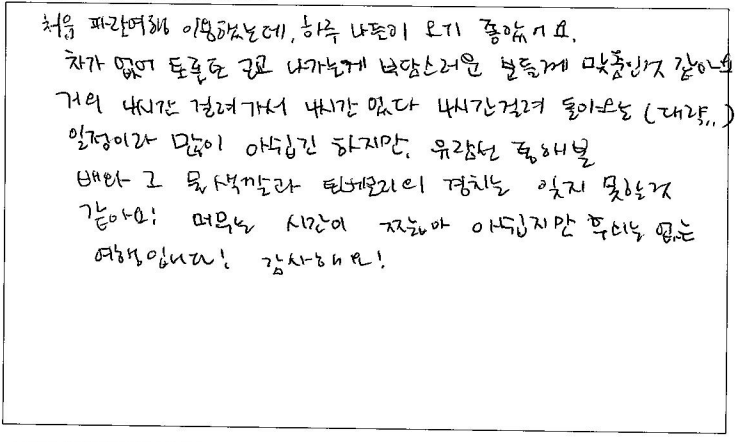 처음 파란여행 이용했는데, 하루 나들이 오기 좋았어요.
차가 없어 토론토 근교 나가는게 부담스러운 분들께 맞춤인것 같아요
거의 4시간 걸려가서 4시간 있다 4시간걸려 돌아오는 (대략..)
일정이라 많이 아쉽긴 하지만, 유람선 통해 본
배와 그 물색깔과 토버모리의 경치는 잊지 못할것
같아요! 머무는 시간이 짧아 아쉽지만 후회는 없는
여행입니다! 감사해요!